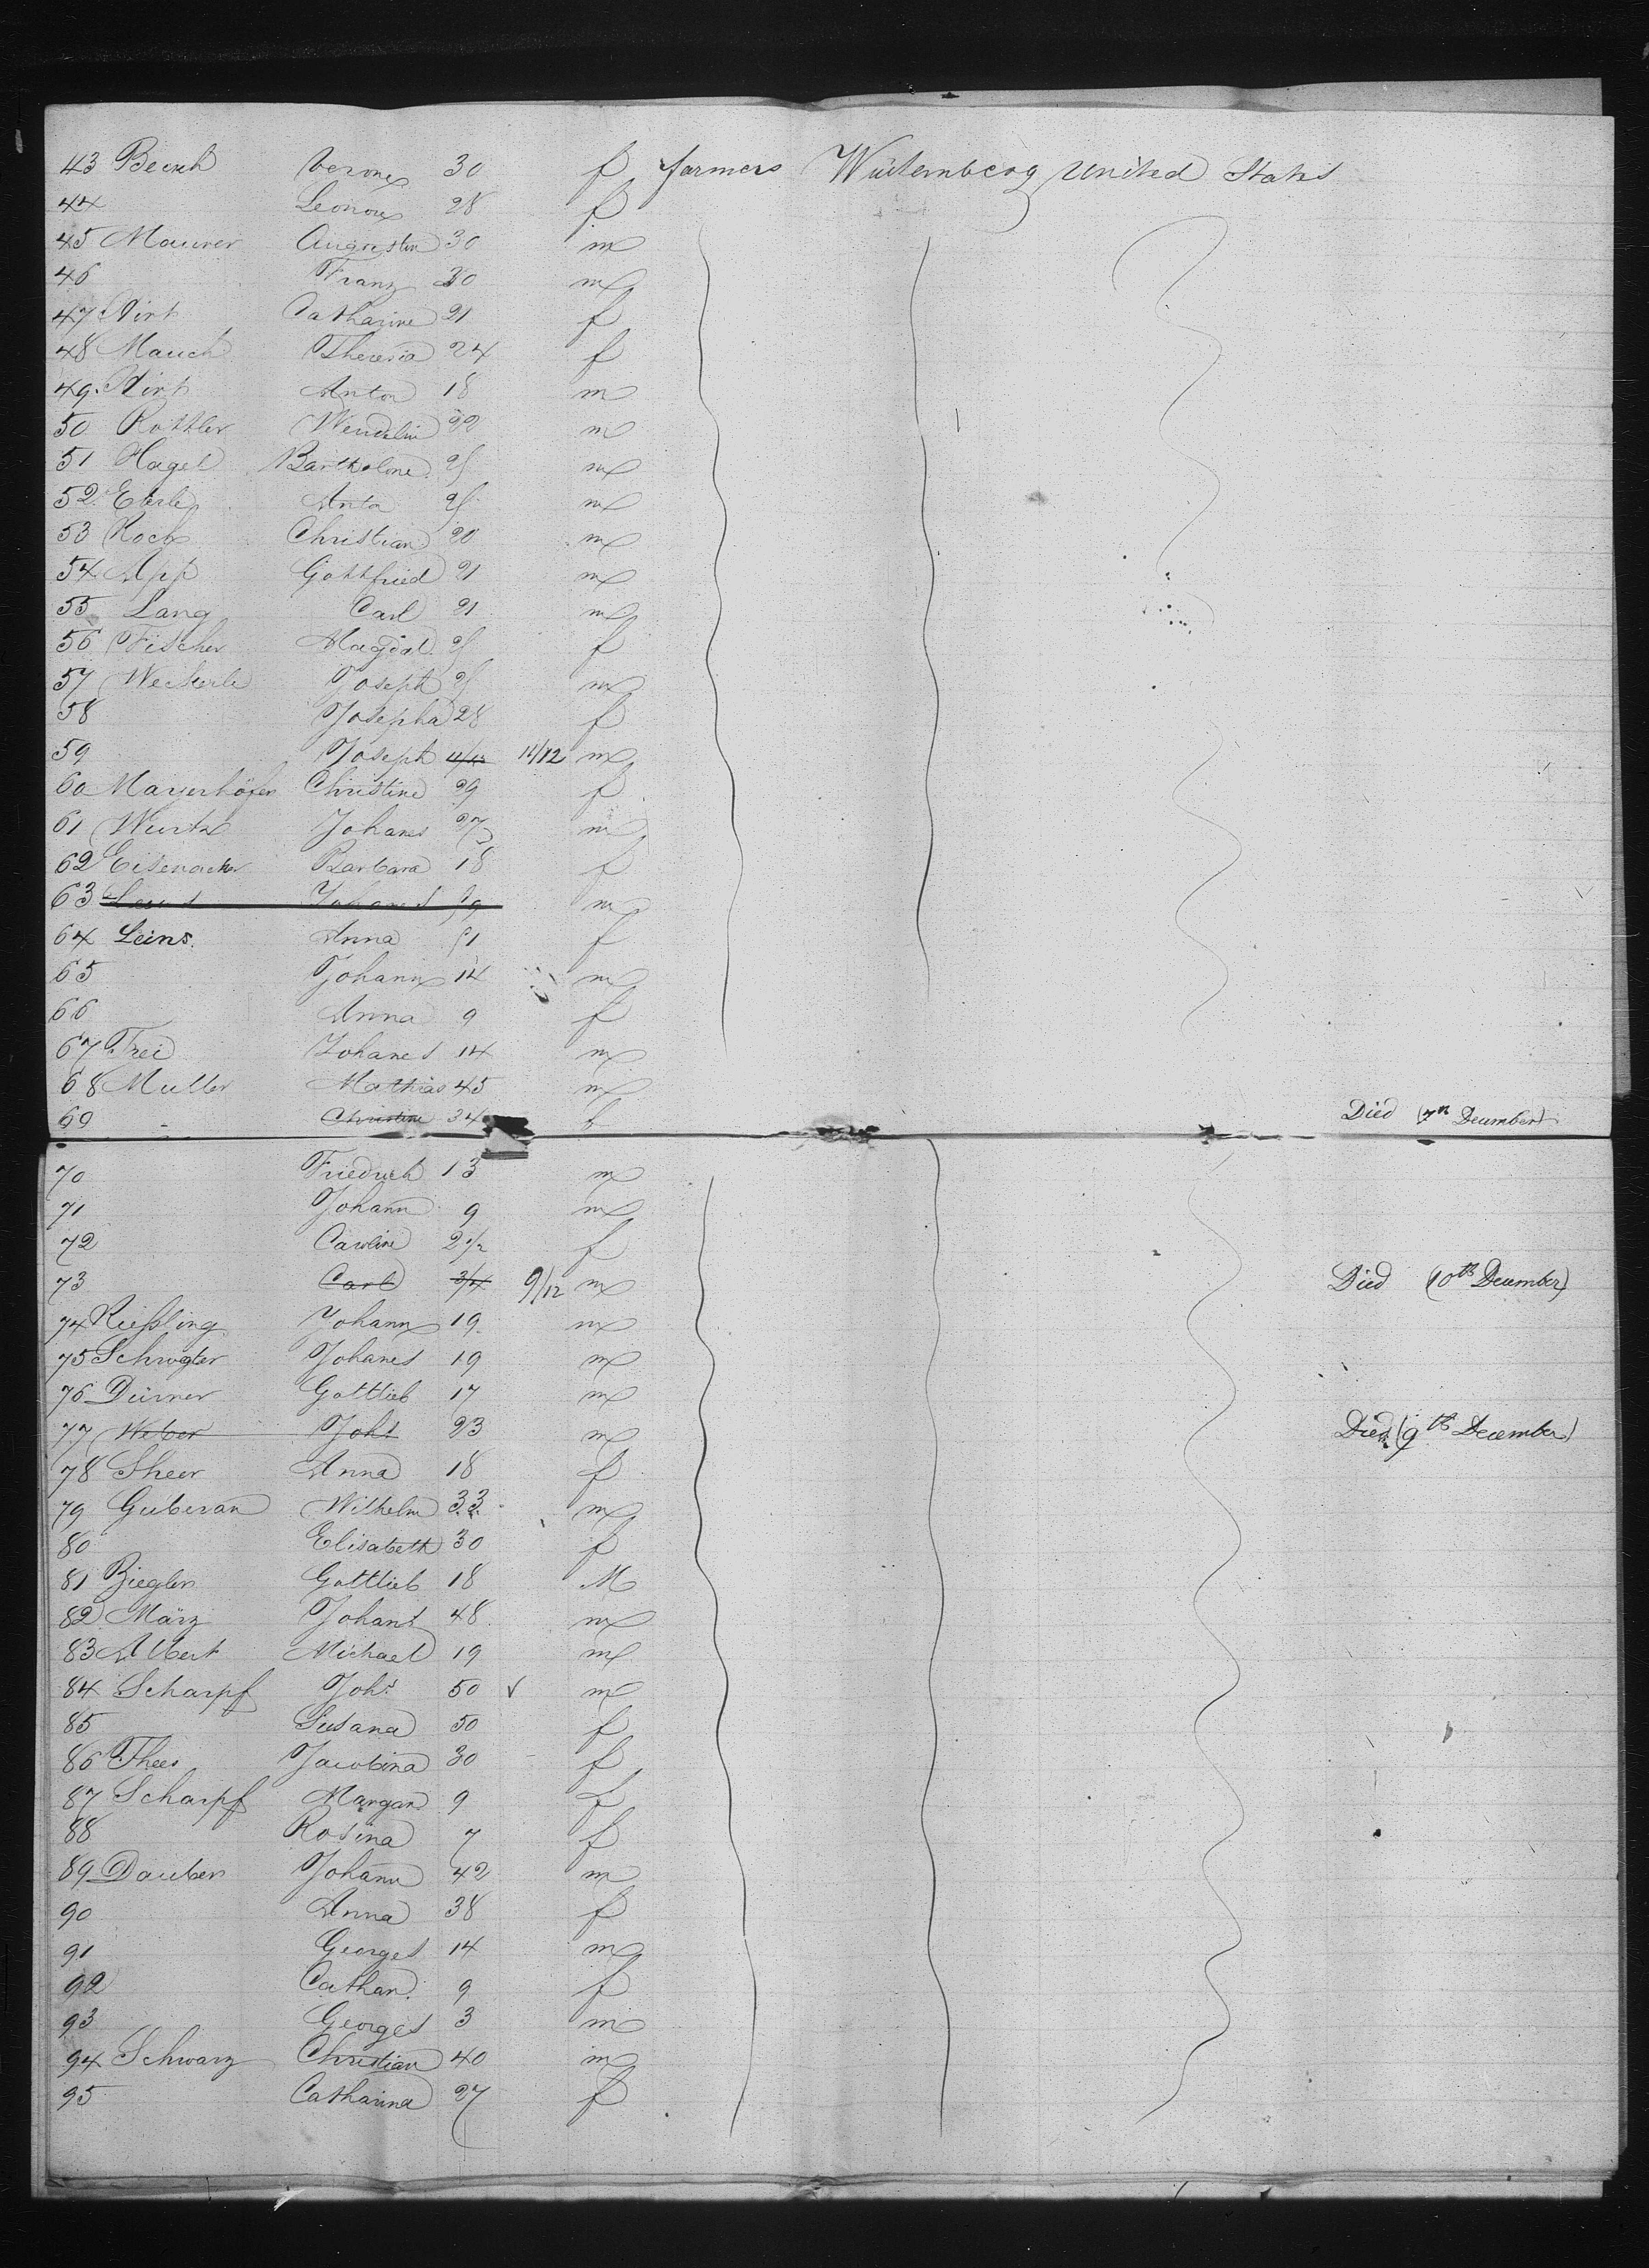 43 Beurh Verone 30 f farmers Würtemberg United States
44 Leonore 28 f
45 Maurer Augustin 30 m
46 Franz 30 m
47 Catharine 21 f
48 Mauch Theresia 24 f
49 Anton 18 m
50 Rottler Wendelin 22 m
51 Hagel Bartholome m
52 Eberle Anton m
53 Koch Christian 20 m
54 App Gottfried 21 m
55 Lang Carl 21 m
56 Fischer Magdal. f
57 Weckerle Joseph m
58 Josepha 28 f
59 Joseph 11/12 m
60 Mayerhöfer Christine 29 f
61 Wurtz Johanes 27 m
62 Eisenacher Barbara 18 f
63 Johanes m
64 Leins. Anna f
65 Johann 14 m
66 Anna 9 f
67 Frei Johanes 14 m
68 Muller Mathias 45 m
69 Christine 34 f Died (7th December)
70 Friedrich 13 m
71 Johann 9 m
72 Caroline 2 1/2 f
73 Carl 3/4 9/12 m Died (10th December)
74 Kießling Johann 19 m
75 Johanes 19 m
76 Dürner Gottlieb 17 m
77 Weber Johs 23 m Died (9th December)
78 Sheer Anna 18 f
79 Guberan Wilhelm 33 m
80 Elisabeth 30 f
81 Ziegler Gottlieb 18 M
82 März Johans 48 m
83 Albert Michael 19 m
84 Scharpf Johs 50 m
85 Susana 50 f
86 Thees Jacobina 30 f
87 Scharpf Margar. 9 f
88 Rosina 7 f
89 Dauber Johann 42 m
90 Anna 38 f
91 Georges 14 m
92 Cathar. 9 f
93 Georges 3 m
94 Schwarz Christian 40 m
95 Catharina 27 f